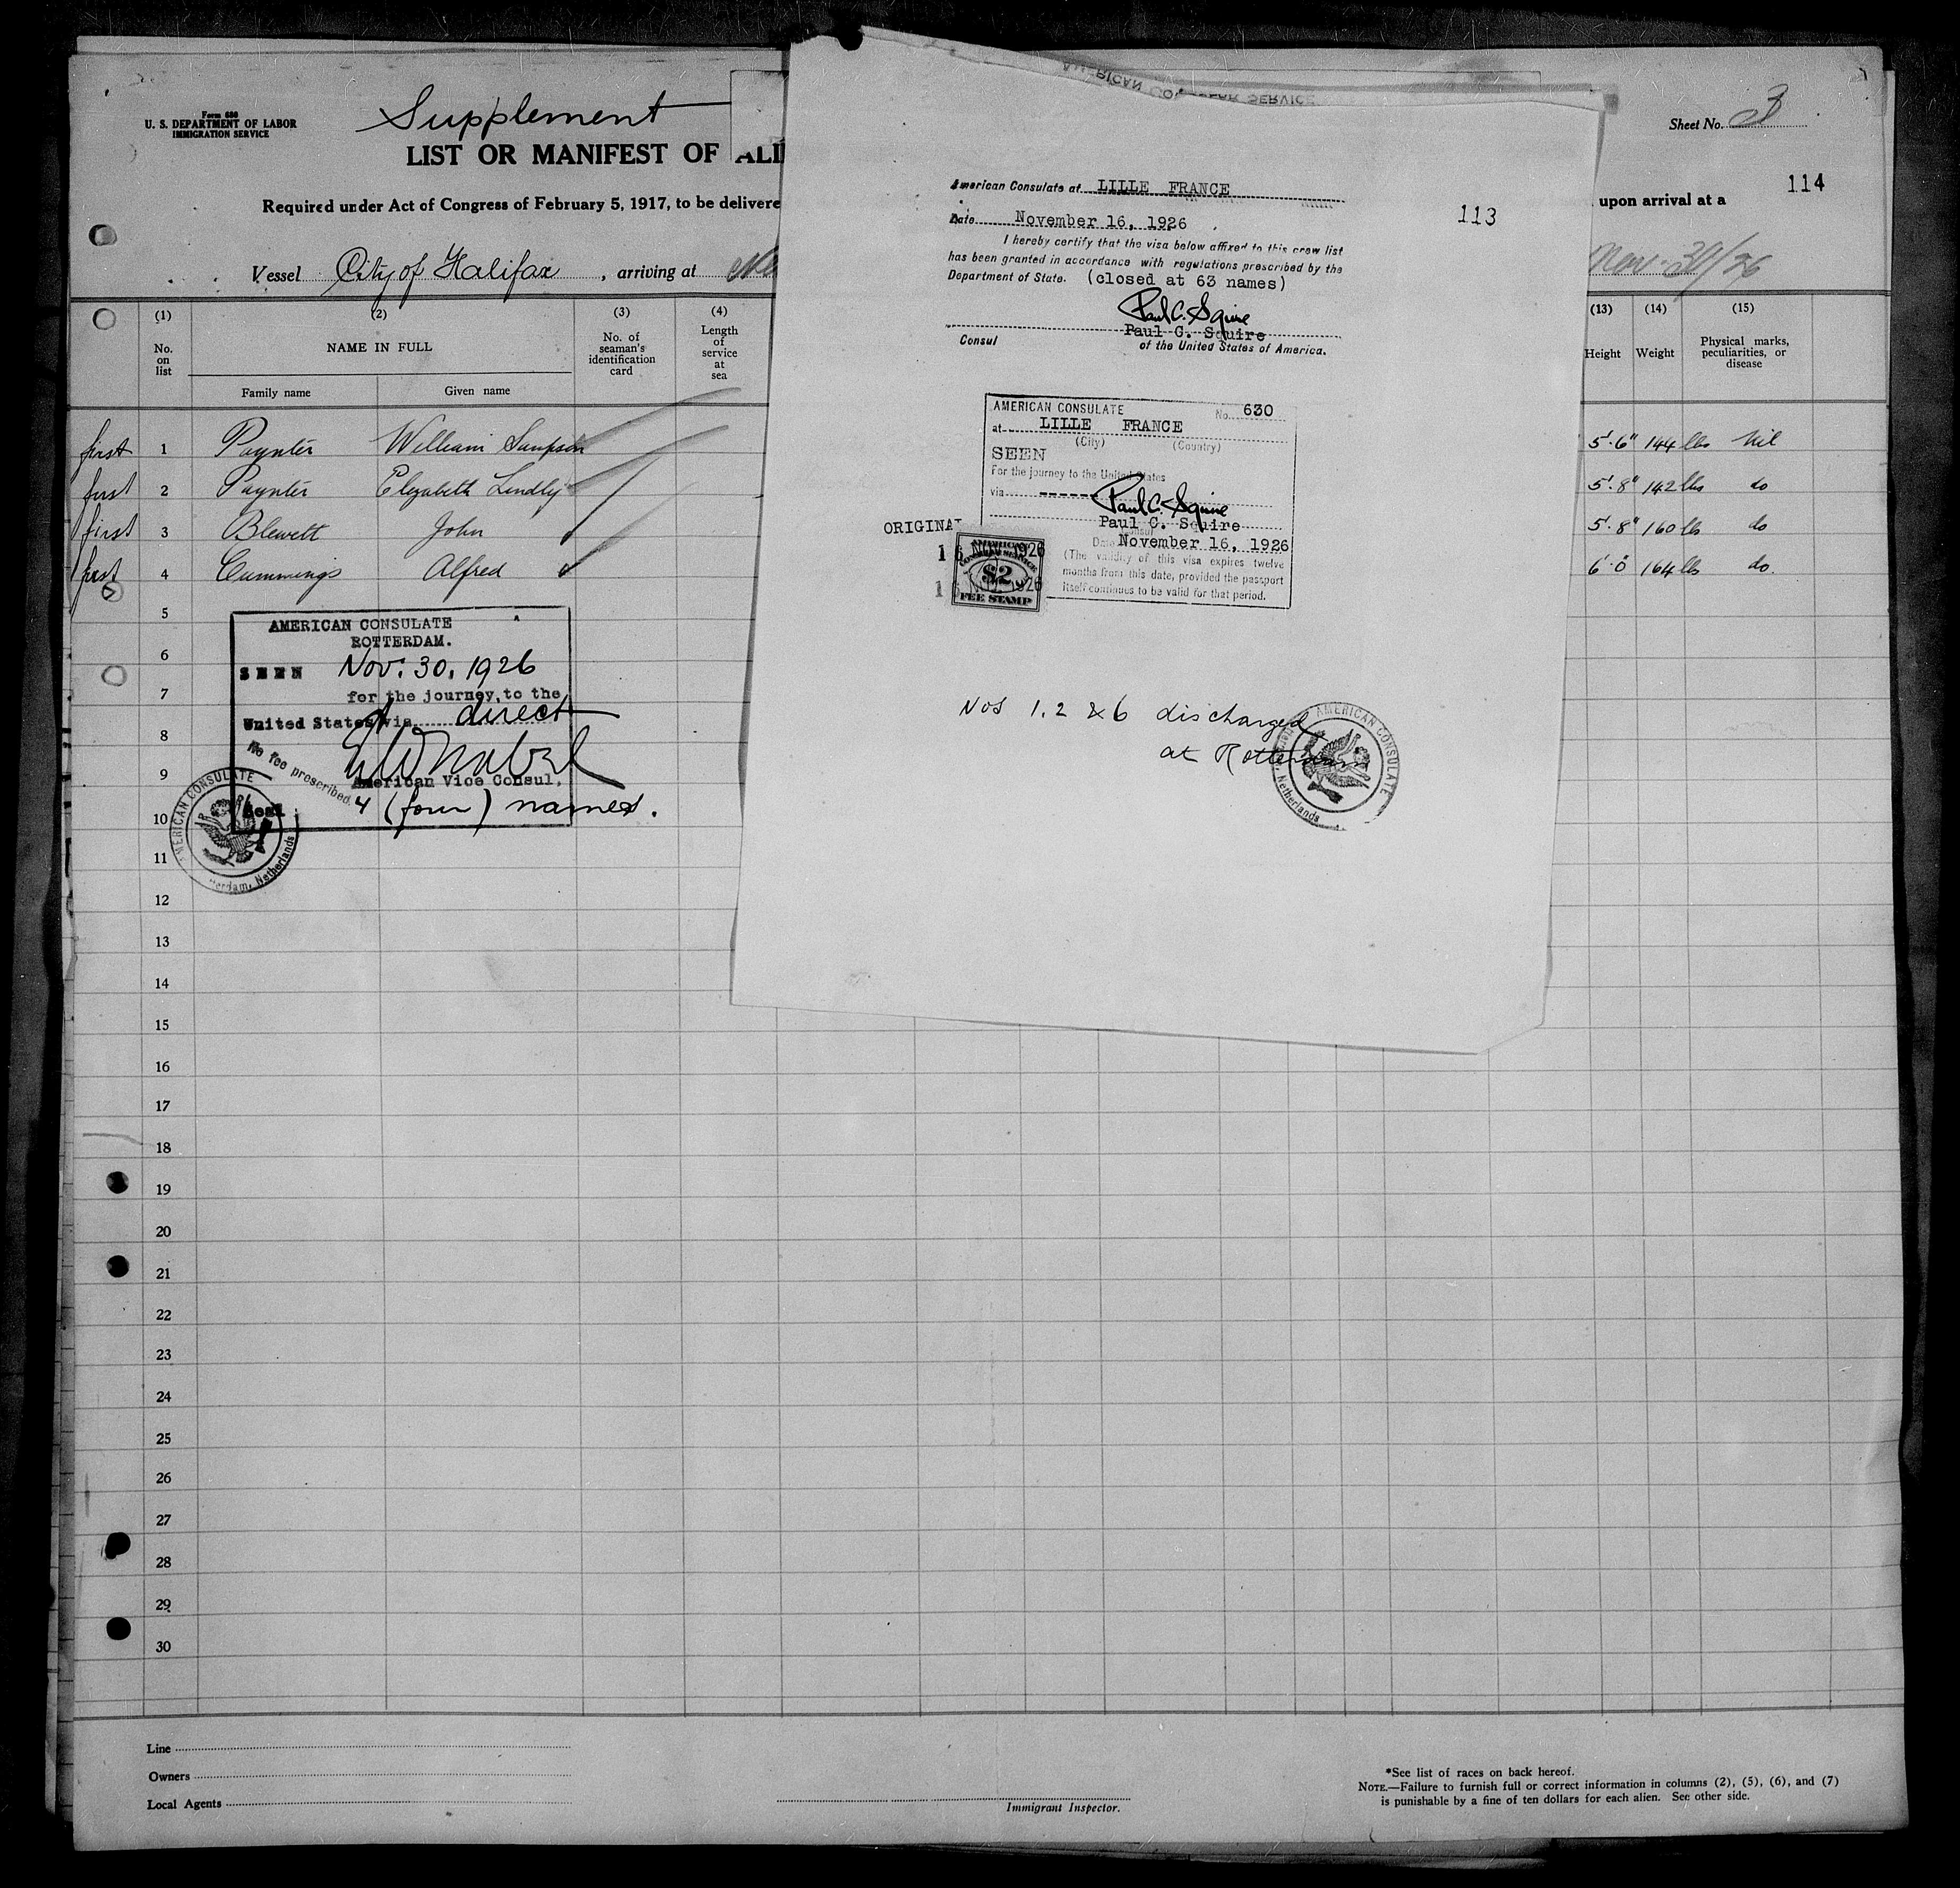 Form 680
U. S. DEPARTMENT OF LABOR
IMMIGRATION SERVICE
Supplement
LIST OR MANIFEST OF ALI
Required under Act of Congress of February 5, 1917, to be delivere
Vessel City of Halifax, arriving at
Sheet No. 3
114
upon arrival at a
Nov. 30/26
(1) No. on list
(2) NAME IN FULL
Family name Given name
(3) No. of seaman's identification card
(4) Length of service at sea
(13) Height
(14) Weight
(15) Physical marks, peculiarities, or disease
first 1 Paynter William Sampson 5'.6" 144 lbs Nil
first 2 Paynter Elizabeth Lindly 5'.8" 142 lbs do
first 3 Blewett John 5'.8" 160 lbs do
first 4 Cummings Alfred 6'.0 164 lbs do.
5
6
7
8
9
10
11
12
13
14
15
16
17
18
19
20
21
22
23
24
25
26
27
28
29
30
AMERICAN CONSULATE
ROTTERDAM.
SEEN Nov. 30. 1926
for the journey to the
United States via direct
American Vice Consul.
No fee prescribed.
4 (four) names.
Seal
AMERICAN CONSULATE
Netherlands
AMERICAN CONSULAR SERVICE
American Consulate at LILLE FRANCE
Date November 16, 1926
113
I hereby certify that the visa below affixed to this crew list
has been granted in accordance with regulations prescribed by the
Department of State. (closed at 63 names)
Paul C. Squire
Paul C. Squire
Consul of the United States of America.
AMERICAN CONSULATE No. 630
at LILLE FRANCE
(City) (Country)
SEEN
For the journey to the United States
via
Paul C. Squire
Paul C. Squire
Consul
Date November 16, 1926
(The validity of this visa expires twelve
months from this date, provided the passport
itself continues to be valid for that period.
ORIGINAL
16 NOV 1926
$2
FEE STAMP
Nos 1. 2 & 6 discharged
at Rotterdam
AMERICAN CONSULATE
Netherlands
Line
Owners
Local Agents
Immigrant Inspector.
*See list of races on back hereof.
NOTE.—Failure to furnish full or correct information in columns (2), (5), (6), and (7)
is punishable by a fine of ten dollars for each alien. See other side.